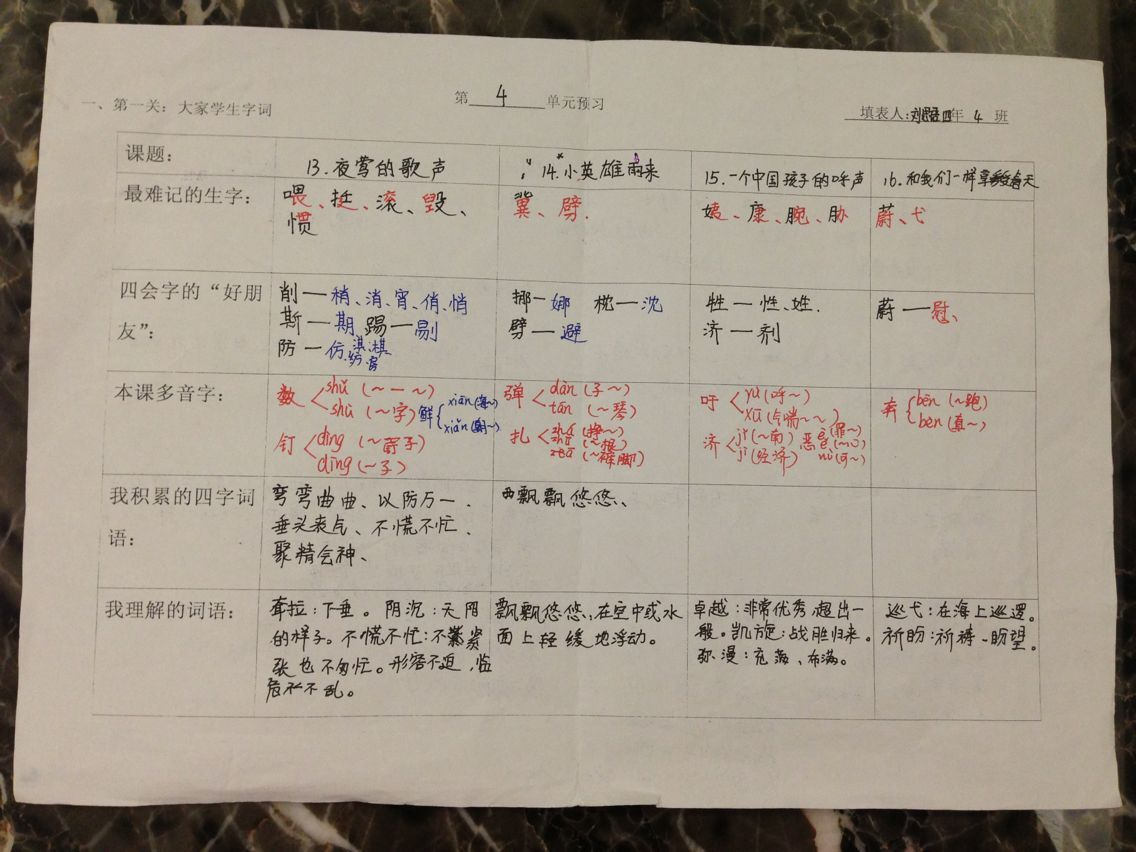 第 4 单元预习
一、第一关：大家学生字词
填表人: 四年 4 班
课题：
13.夜莺的歌声
14.*小英雄雨来
15.一个中国孩子的呼声
16.和我们一样享受春天
最难记的生字：
喂、挺、滚、毁、
惯
冀、劈.
姨、康、腕、胁
蔚、弋
四会字的“好朋
友”：
削—梢、消、宵、俏、悄
斯—期、踢—剔
防—仿、淇、棋
纺、房
挪—娜 枕—沈
劈—避
牲—性、姓.
济—剂
蔚—慰、
本课多音字：
数 shǔ (～一～)
shù (～字)
鲜 xiān (海～)
xiǎn (朝～)
钉
dīng (～子)
弹 dàn (子～)
tán (～琴)
扎 (挣～)
(～根)
(～裤脚)
吁 yù (呼～)
xū
济 jǐ (～南)
jì (经济)
恶 è (罪～)
ě (～心)
wù (可～)
奔 bēn (～跑)
bèn (直～)
我积累的四字词
语：
弯弯曲曲、以防万一.
垂头丧气、不慌不忙.
聚精会神、
飘飘悠悠、
我理解的词语：
耷拉：下垂。阴沉：天阴
的样子。不慌不忙：不紧
张也不匆忙。形容不迫，临
危不乱。
飘飘悠悠、在空中或水
面上轻缓地浮动。
卓越：非常优秀，超出一
般。凯旋：战胜归来。
弥漫：充满、布满。
巡弋：在海上巡逻。
祈盼：祈祷、盼望。